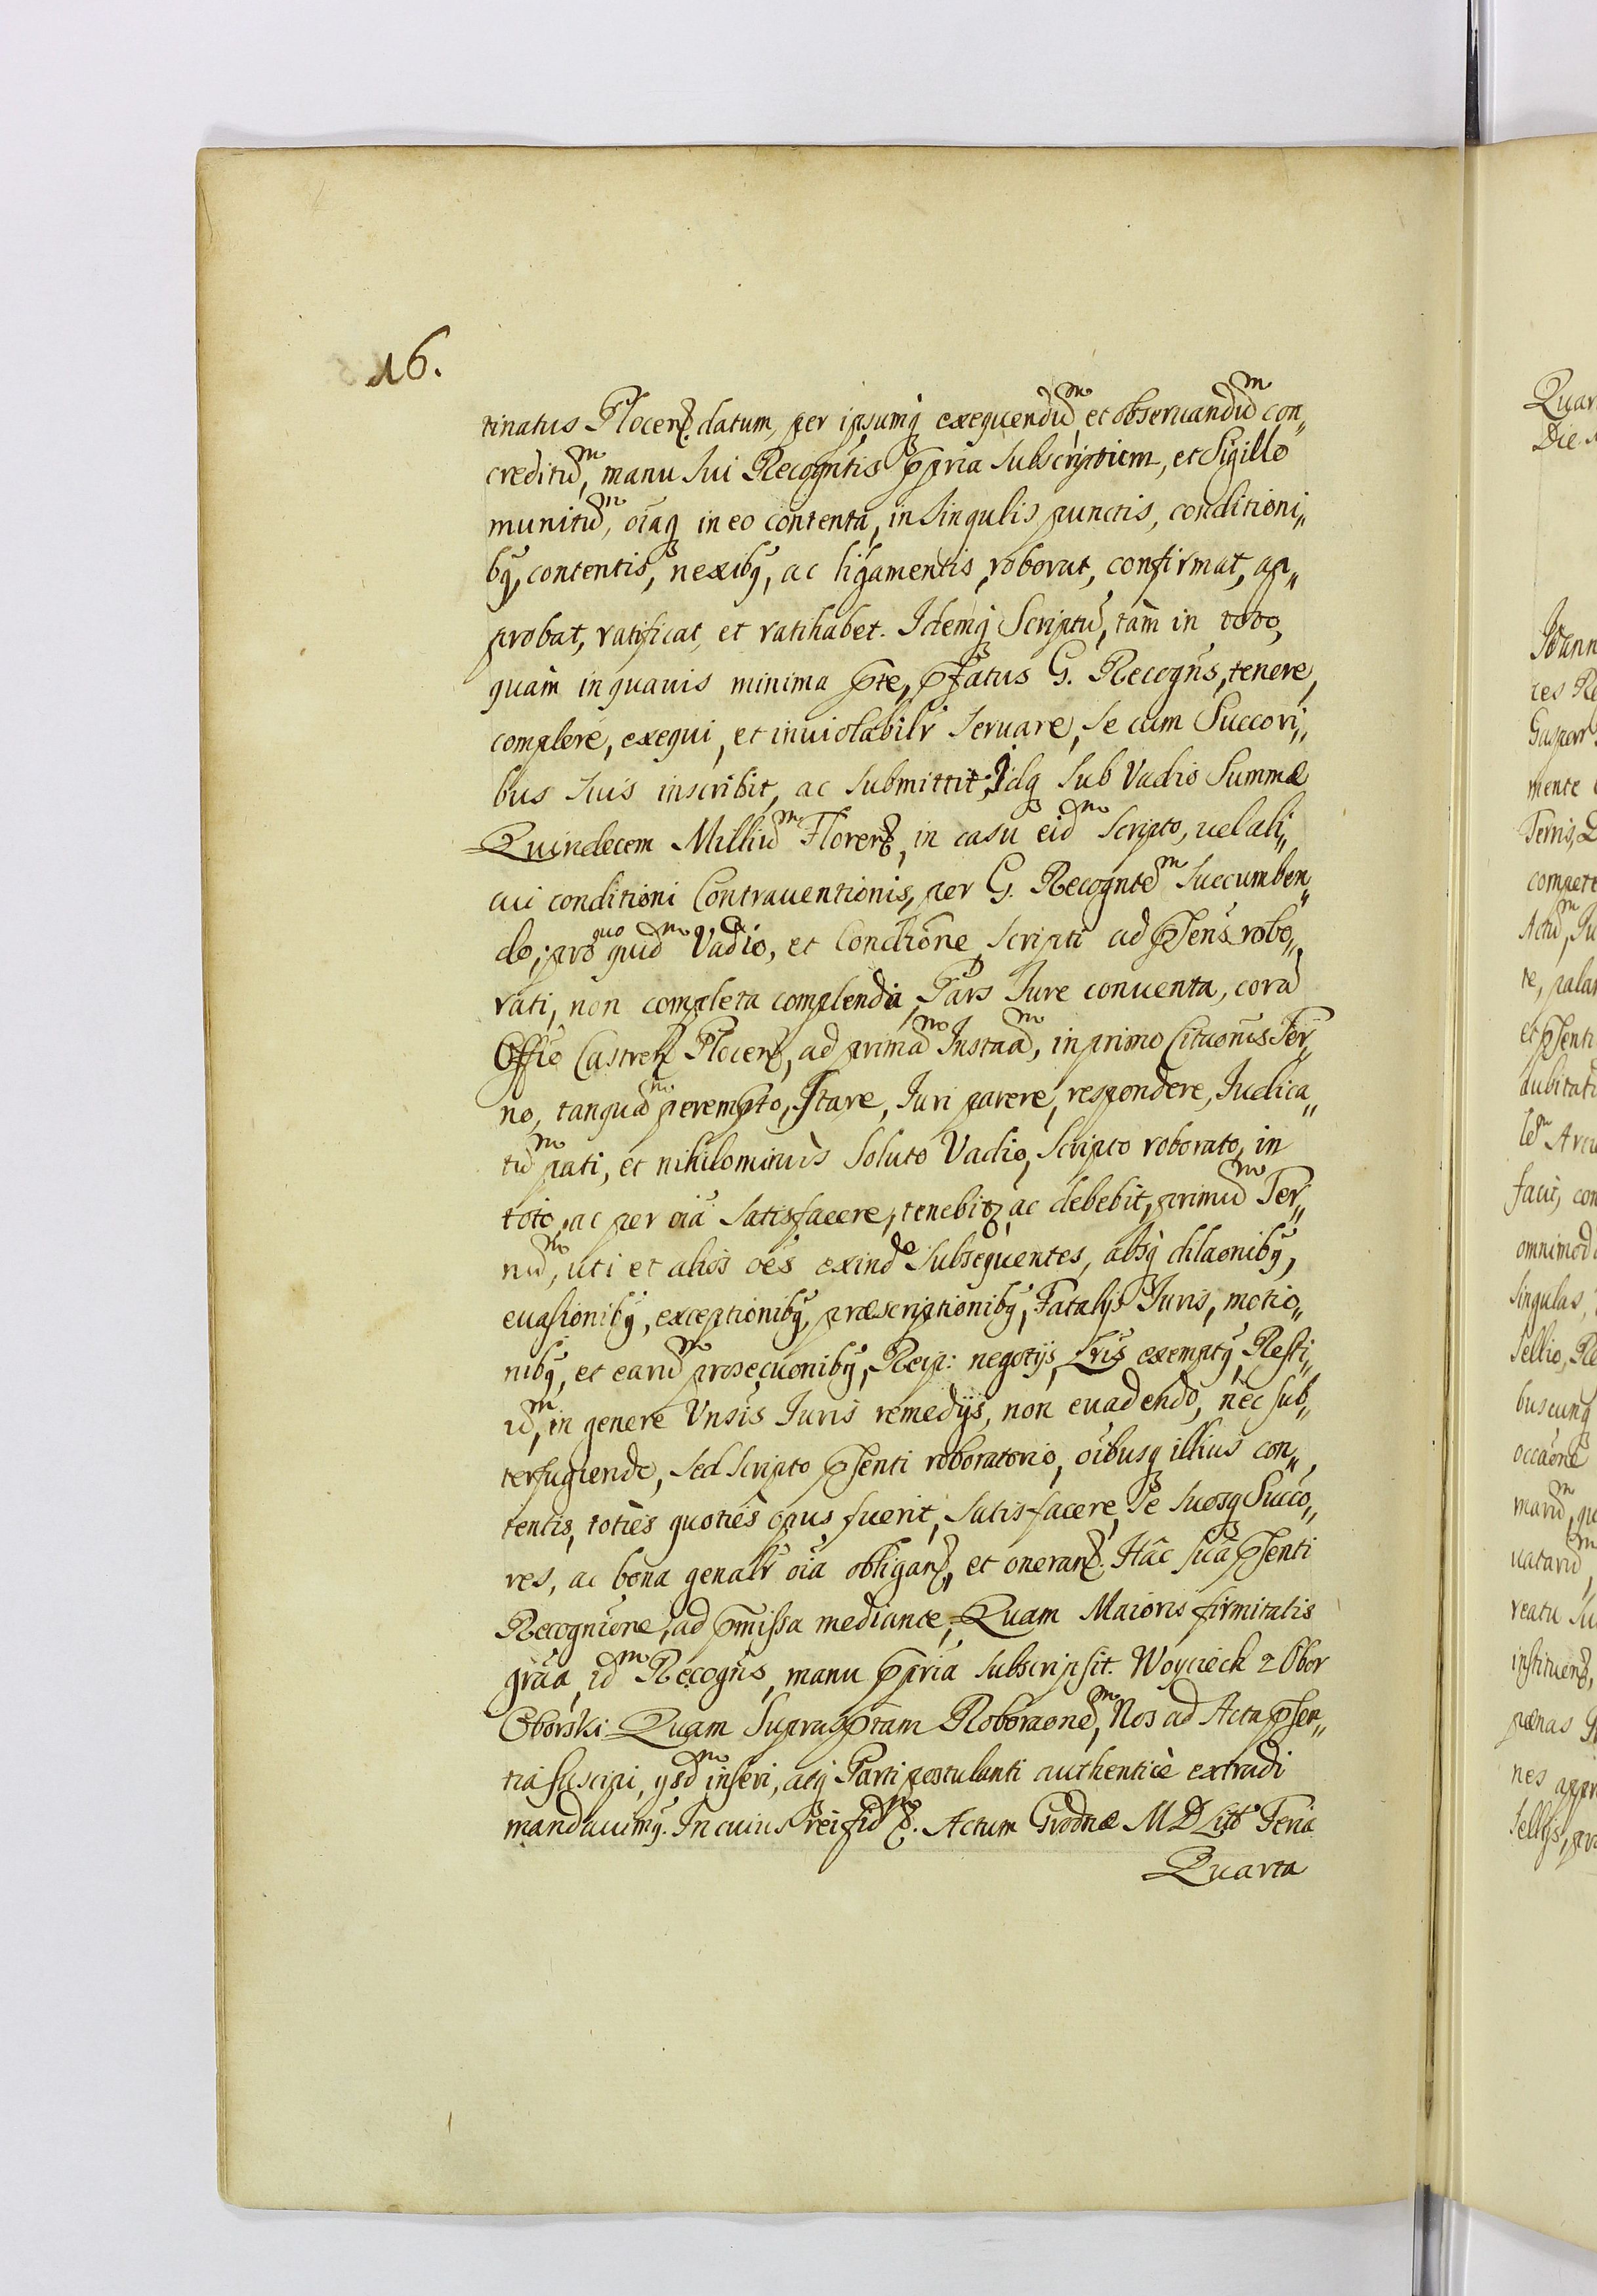 16.
tinatus Plocen. datum, per ipsumq exequendum, et obseruandum con„
creditum, manu sui Recogntis ppria subscriptum, et Sigillo
munitum, oiaq in eo contenta, in singulis punctis, conditioni„
bq, contentis, nexibq, ac ligamentis, roborat, confirmat, ap„
probat, ratificat, et ratihabet. Idemq Scriptu, tam in toto,
quàm in quauis minima pte, pfatus G. Recogns, tenere,
complere, exequi, et inuiolabilr seruare, se cum Succori„
bus suis inscribit, ac submittit, Idq sub Vadio Summæ
Quindecem Millium Floren, in casu eidm scripto, uel ali„
cui conditioni Contrauentionis, per G. Recogntem succumben„
do; pro quo quidm Vadio, et Condione Scripti ad psens robo„
rati, non completa complenda, Pars Iure conuenta, cora
Offio Castren Plocen, ad primam Instam, in primo Citaonis Ter„
no, tanquam perempto, Stare, Iuri parere, respondere, Iudica„
tum pati, et nihilominùs soluto Vadio, scripto roborato, in
toto, ac per oia satisfacere, tenebit, ac debebit, primum Ter„
num, uti et alios oes exinde subsequentes, absq dilaonibq,
euasionibq, exceptionibq, præscriptionibq, Fatalijs Iuris, motio„
nibq, et earum prosecuonibq, Reip: negotijs, Lris exemptq, Resti„
um, in genere Vnsis Iuris remedijs, non euadendo, nec sub„
terfugiendo, sed scripto psenti roboratorio, oibusq illius con„
tentis, toties quoties opus fuerit, satisfacere, se suosq Succo„
res, ac bona genalr oia obligan, et oneran. Hâc suâ psenti
Recognione, ad pmissa mediante, Quam Maioris firmitatis
graa, idm Recogns, manu ppria subscripsit. Woyciech z Obor
Oborski. Quam Suprasptam Roboraonem, Nos ad Acta psen„
tia suscipi, ijsdm inseri, atq Parti postulanti authenticè extradi
mandauimq. In cuius rei fidm &. Actum Grodnæ M D Litt Feria
Quarta